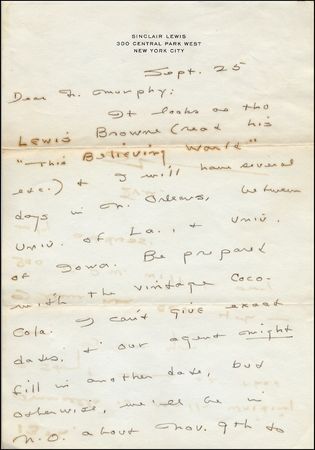 SINCLAIR LEWIS
300 CENTRAL PARK WEST
NEW YORK CITY
Sept. 25
Dear Dr. Murphy:
It looks as tho
Lewis Browne (read his
"This Believing World"
etc.) & I will have several
days in N. Orleans, between
Univ. of La., & Univ.
of Iowa. Be prepared
with the vintage Coco-
Cola. I can't give exact
dates, & our agent might
fill in another date, but
otherwise, we'll be in
N.O. about Nov. 9th to